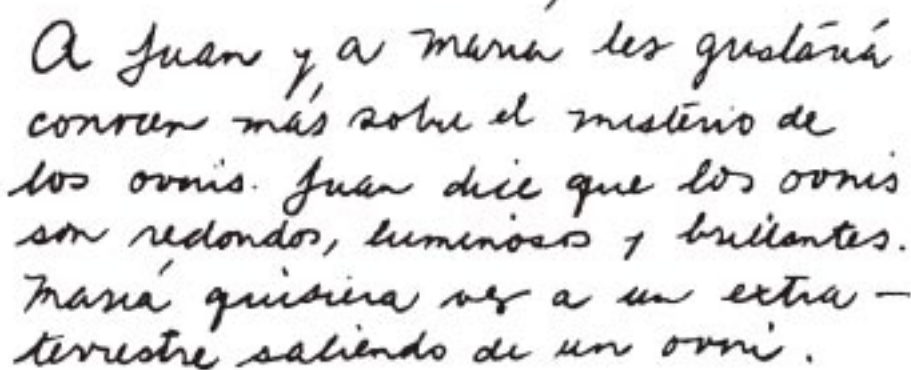 A Juan y a María les gustaría
conocer más sobre el misterio de
los ovnis. Juan dice que los ovnis
son redondos, luminosos y brillantes.
María quisiera ver a un extra-
terrestre saliendo de un ovni.